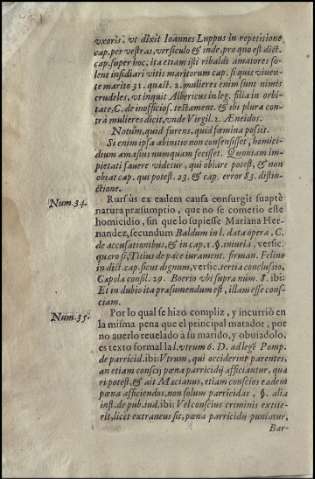 vxoris, vt dixit Ioannes Luppus in repetitione
cap. per vestras, versiculo & inde, pro quo est dict.
cap. super hoc, ita etiam isti ribaldi amatores so-
lent insidiari vitis maritorum cap. si quis viuen-
te marito 31. quæst. 1. mulieres enim sunt nimis
crudeles, vt inquit Albericus in leg. filia in orbi-
tate, C. de inofficios. testament. & ibi plura con-
trà mulieres dicit, vnde Virgil. 1. Æneidos.
Notum, quid furens, quid fœmina possit.
Si enim ipsa ab initio non consensisset, homici-
dium amasius numquam fecisset. Quoniam im-
pietati fauere videtur, qui obiare potest, & non
obiat cap. qui potest. 23. & cap. error 83. distin-
ctione.
Num. 34.
Rursùs ex eadem causa consurgit suaptè
natura præsumptio, que no se cometio este
homicidio, sin que lo supiesse Mariana Her-
nandez, secundum Baldum in l. data opera, C.
de accusationibus, & in cap. 1. §. iniuria, versic.
quero si, Titius de pace iurament. firman. Felino
in dict. cap. sicut dignum, versic. tertia conclusio,
Capola consil. 29. Borrio vbi supra num. 8. ibi:
Et in dubio ita præsumendum est, illam esse con-
sciam.
Num. 35.
Por lo qual se hizo compliz, y incurriò en
la misma pena que el principal matador, por
no auerlo reuelado à su marido, y obuiadolo,
es texto formal la l. vtrum 6. D. ad leg. Pomp.
de parricid. ibi: Vtrum, qui occiderint parentes,
an etiam conscij pœna parricidij afficiantur, quæ
ri potest, & ait Mæcianus, etiam conscios eadem
pœna afficiendos, non solum parricidas, §. alia
inst. de pub. iud. ibi: Vel conscius criminis extite-
rit, licet extraneus sit, pœna parricidij puniatur,
Bar-